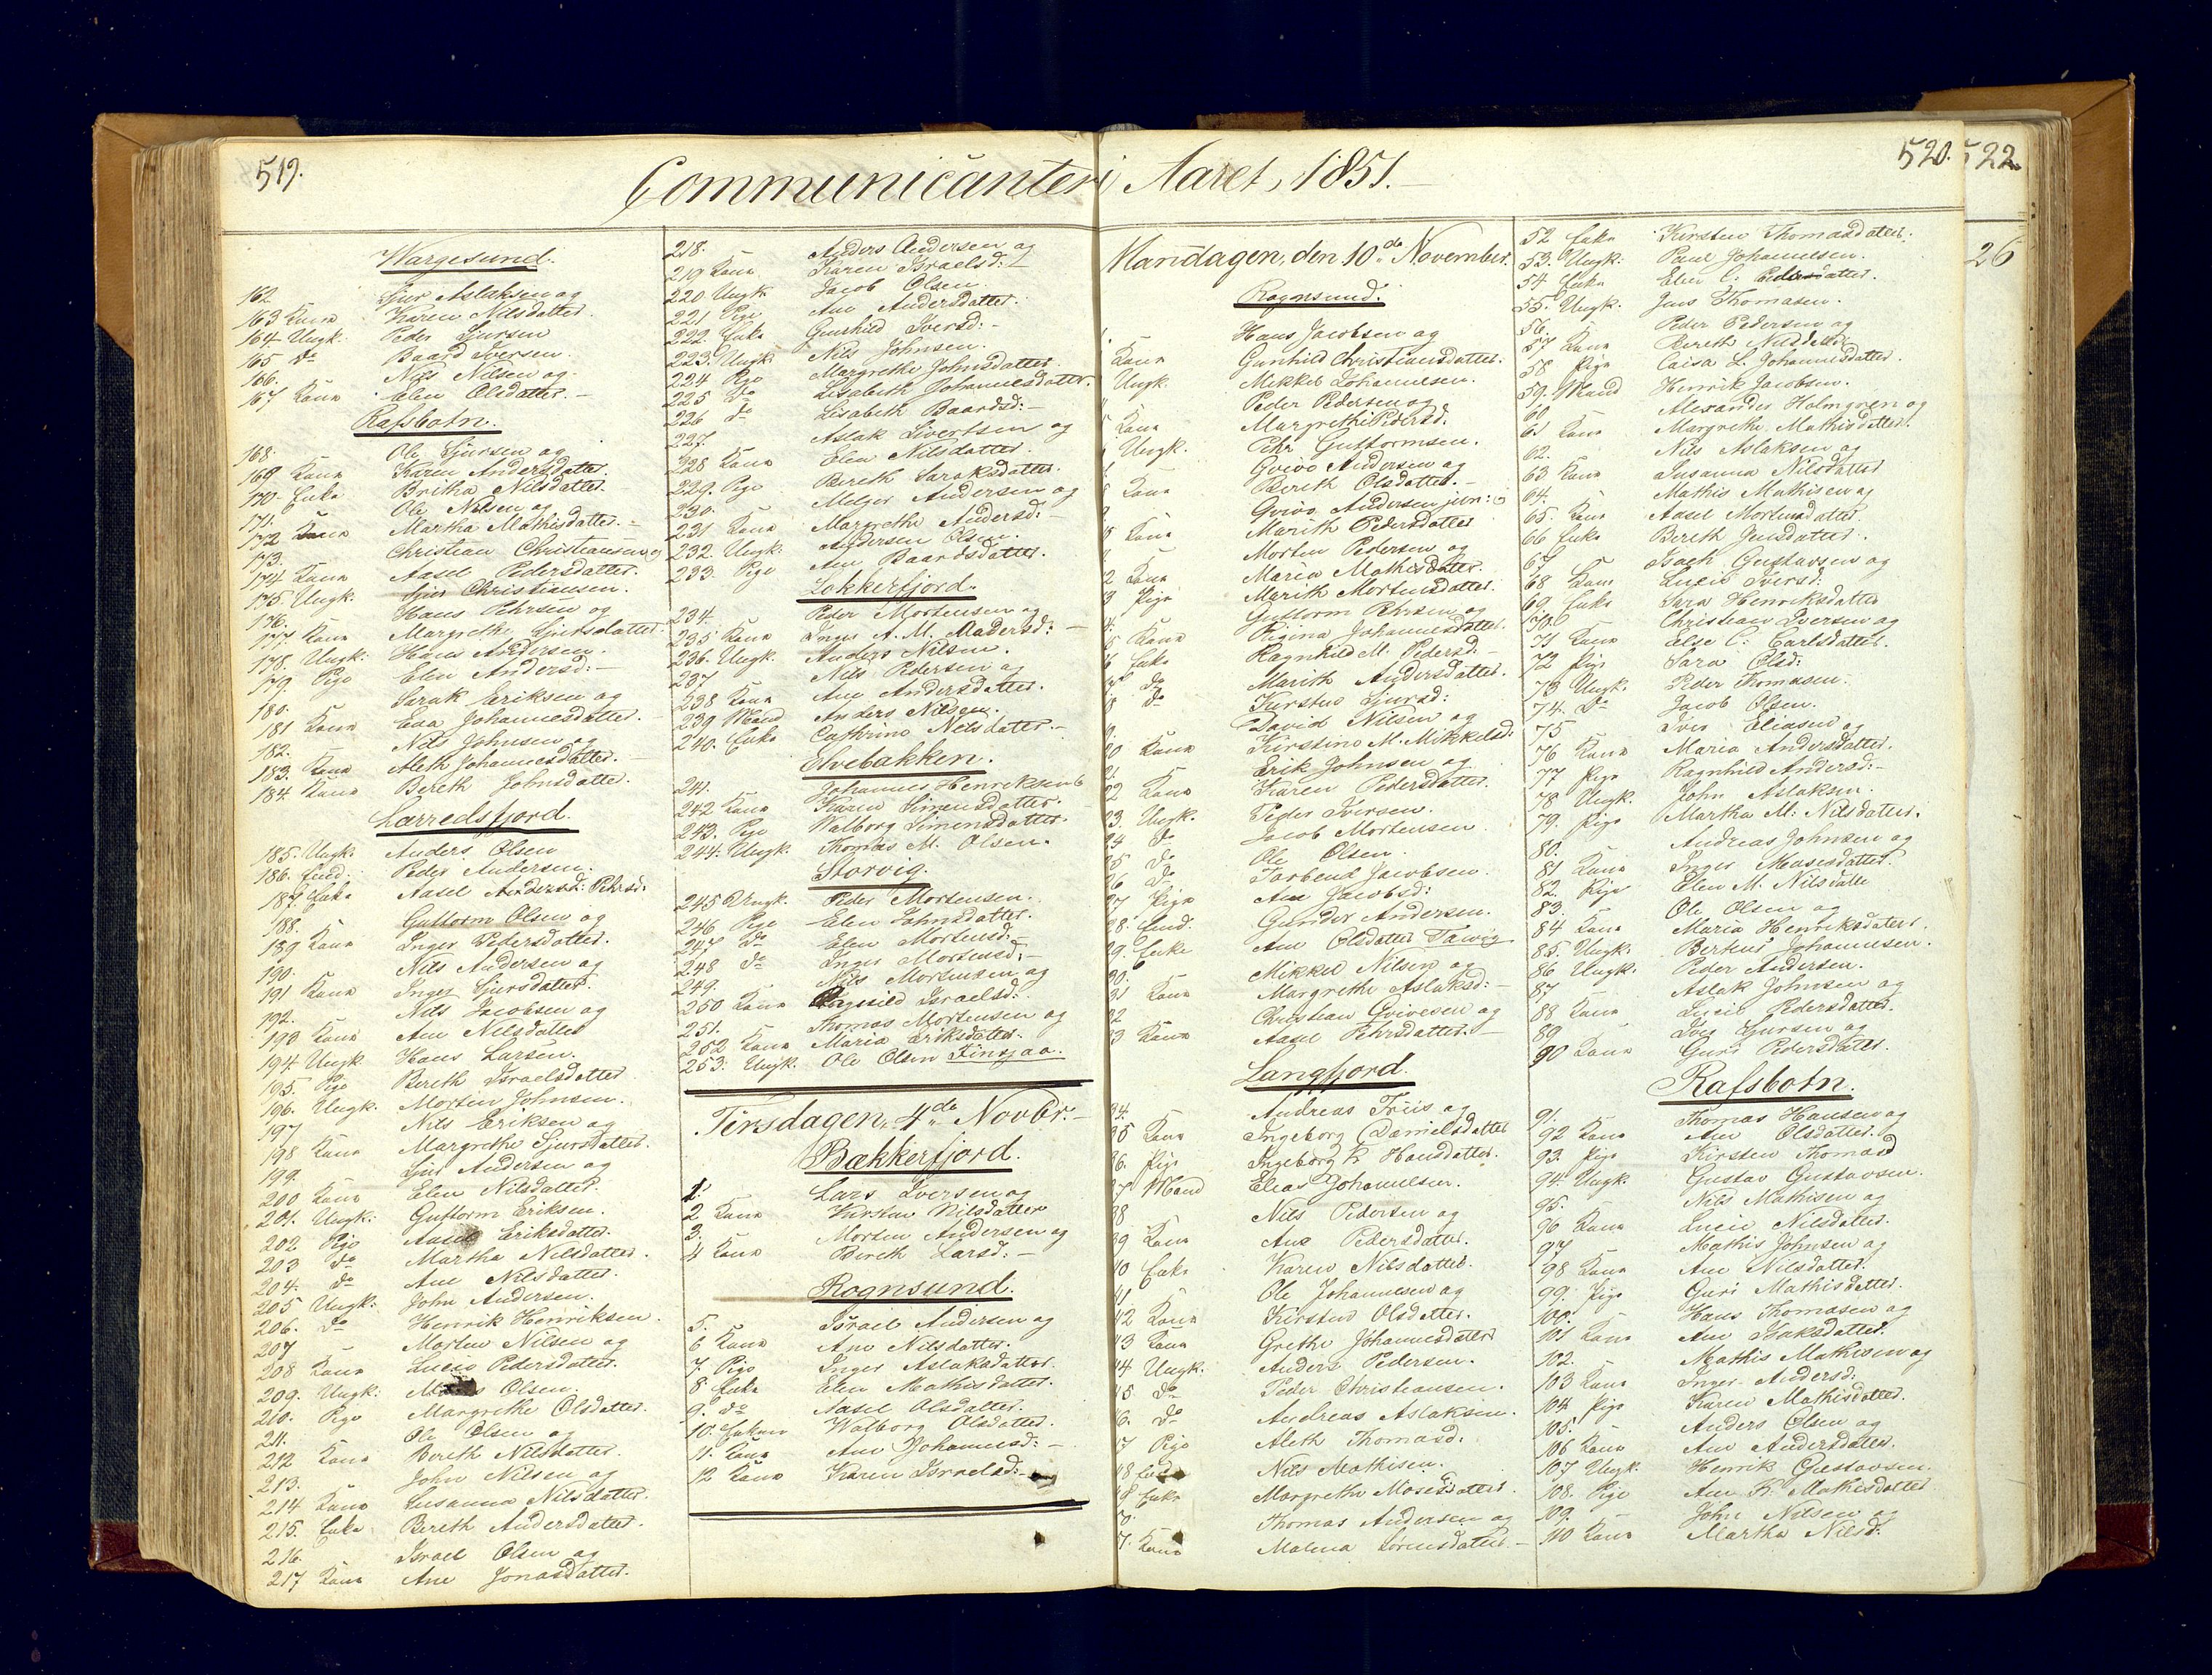 519.
Communicanter i Aaret, 1851.
520.
522
26
Wargesund.
162. Sjur Aslaksen og
163 Kona Karen Nilsdatter.
164 Ungk: Peder Sjursen
165 do Baard Iversen.
166. Nils Nilsen og
167 Kona Elen Olsdatter.
Rafsbotn.
168. Ole Sjursen og
169 Kona Karen Andersdatter.
170. Enke Britha Nilsdatter.
171. Ole Nilsen og
172 Kona Martha Mathisdatter.
173. Christian Christiansen og
174 Kona Aasel Pedersdatter.
175. Ungk: Sjur Christiansen.
176. Hans Pehrsen og
177 Kona Margrethe Sjursdatter.
178. Ungk: Hans Andersen.
179. Pige Elen Andersd:
180. Israk Eriksen og
181 Kona Eva Johannesdatter.
182. Nils Johnsen og
183. Kona Aleth Johannesdatter.
184 Kona Bereth Johnsdatter.
Lerredsfjord.
185. Ungk: Anders Olsen
186. Peder Andersen.
187. Enke Aasel Andersd: Pehrsd:
188. Guttorm Olsen og
189 Kona Inger Pedersdatter.
190. Nils Andersen og
191 Kona Inger Sjursdatter.
192. Nils Jacobsen og
193 Kona Ane Nilsdatter
194 Ungk Hans Larsen.
195. Pige Bereth Israelsdatter
196. Ungk. Morten Johnsen.
197 Nils Eriksen og
198 Kona Margrethe Sjursdatter.
199. Sjur Andersen og
200 Kona Elen Nilsdatter.
201. Ungk: Guttorm Eriksen.
202 Pige Aasel Eriksdatter.
203 do Martha Nilsdatter.
204. do Ane Nilsdatter.
205 Ungk: John Andersen.
206. do Henrik Henriksen.
207 Morten Nilsen og
208 Kona Lucie Pedersdatter.
209. Ungk: Olsen.
210. Pige Margrethe Olsdatter.
211. Ole Olsen og
212 Kona Bereth Nilsdatter.
213. John Nilsen og
214 Kona Susanna Nilsdatter.
215. Enke Bereth Andersdatter.
216. Israel Olsen og
217 Kona Ane Jonasdatter.
218. Anders Andersen og
219 Kona Karen Israelsd:
220 Ungk Jacob Olsen.
221 Pige Ane Andersdatter.
222. Enke Gunhild Iversd:
223. Ungk Nils Johnsen.
224 Pige Margrethe Johnsdatter
225 do Lisabeth Johannesdatter.
226 do Lisabeth Baardsd:
227. Aslak Sivertsen og
228 Kona Elen Nilsdatter.
229. Pige Bereth Israksdatter.
230. Melger Andersen og
231 Kona Margrethe Andersd:
232. Ungk: Andersen Olsen.
233. Pige Ane Baardsdatter.
Lokkerfjord.
234. Peder Mortensen og
235 Kona Inger A. M. Madersd:
236. Ungk. Anders Nilsen.
237 Nils Pedersen og
238 Kona Ane Andersdatter.
239 Mand Anders Nilsen.
240. Enke Cathrine Nilsdatter.
Elvebakken.
241. Johannes Henriksen og
242 Kona Karen Simensdatter.
243. Pige Walborg Simensdatter.
244. Ungk. Thomas M. Olsen.
Storvig.
245 Ungk. Peder Mortensen.
246 Pige Elen Johnsdatter.
247 do Elen Mortensd:
248 do Inger Mortensd:
249. Nils Mortensen og
250 Kona Israelsd:
251. Thomas Mortensen og
252 Kona Maria Eriksdatter.
253. Ungk. Ole Olsen
Tirsdagen 4de Novbr.
Bækkerfjord.
1. Lars Iversen og
2 Kona Kirsten Nilsdatter
3. Morten Andersen og
4 Kona Bireth Larsd:
Rognsund.
5. Israel Andersen og
6 Kona Ane Nilsdatter.
7 Pige Inger Aslaksdatter.
8 Enke Elen Mathisdatter.
9. do Aasel Olsdatter.
10. Enken Walborg Olsdatter.
11. Kona Ane Johannesd:
12 Kona Karen Israelsd:
Mandagen, den 10de November.
Rognsund.
Hans Jacobsen og
Kona Gunhild Christiansdatter.
Ungk. Mikkel Johannesen.
Peder Pedersen og
Kona Margrethe Pedersd.
Ungk. Pehr Guttormsen.
Gvive Andersen og
Kona Bereth Olsdatter.
Gvive Andersen jun: og
Kona Marith Pedersdatter
Morten Pedersen og
2 Kona Maria Mathisdatter.
3 Pige Marith Mortensdatter.
4. Guttorm Pehrsen og
5 Kona Regina Johannesdatter.
6 Enke Ragnhild M. Pedersd:
do Marith Andersdatter.
8 do Kirsten Sjursd:
9. David Nilsen og
20 Kona Kirstine M. Mikkelsd:
21 Erik Johnsen og
22 Kona Karen Pedersdatter.
23. Ungk. Peder Iversen.
24 do Jacob Mortensen
25 do Ole Olsen.
26 do Torbend Jacobsen
27 Pige Ane Jacobsd:
28. Gunder Andersen.
29. Enke Ane Olsdatter Talvig
30. Mikkel Nilsen og
31 Kona Margrethe Aslaksd:
32 Christian Gvivesen og
33 Kona Aasel Pehrsdatter.
Langfjord.
34. Andreas Friis og
35 Kona Ingeborg Danielsdatter
36. Pige Ingeborg K. Hansdatter.
37 Mand Elias Johannesen.
38 Nils Pedersen og
39 Kona Ane Pedersdatter.
40 Enke Karen Nilsdatter.
41 Ole Johannesen og
42 Kona Kirsten Olsdatter.
43 Kona Grethe Johannesdatter
44 Ungk. Anders Pedersen.
45 do Peder Christiansen.
46. do Andreas Aslaksen.
47 Pige Aleth Thomasd:
48 Nils Mathisen.
Enke Margrethe Mosesdatter.
Thomas Andersen og
Kona Malena Sørensdatter.
52 Enke Kirsten Thomasdatter.
53. Ungk: Paul Johannesen.
54 Enke Elen C. Pedersdatter.
55. Ungk. Jens Thomasen.
56. Peder Pedersen og
57 Kona Bereth Nilsdatter
58 Pige Caisa L. Johannesdatter.
59. Mand Henrik Jacobsen.
60 Alexander Holmgren og
61 Kona Margrethe Mathisdatter.
62. Nils Aslaksen og
63 Kona Susanna Nilsdatter
64. Mathis Mathisen og
65. Kona Aasel Mortensdatter.
66 Enke Bereth Jensdatter.
67 Isach Gustavsen og
68 Kona Lucie Iversd:
69. Enke Sara Henriksdatter
70. Christian Iversen og
71 Kona Else C. Carlsdatter.
72 Pige Sara Olsd:
73 Ungk. Peder Thomasen.
74. do Jacob Olsen.
75 Iver Eliasen og
76 Kona Maria Andersdatter.
77 Pige Ragnhild Andersd:
78 Ungk. John Aslaksen.
79. Pige Martha M: Nilsdatter.
80. Andreas Johnsen og
81 Kona Inger Mosesdatter.
82. Pige Elen M. Nilsdatter
83. Ole Olsen og
84 Kona Maria Henriksdatter.
85. Ungk. Berteus Johannesen.
86 Ungk. Peder Andersen.
87 Aslak Johnsen og
88 Kona Lucie Pedersdatter.
89 Iver Sjursen og
90 Kona Guri Pedersdatter.
Rafsbotn.
91. Thomas Hansen og
92 Kona Ane Olsdatter.
93. Pige Kirsten Thomasd
94 Ungk. Gustav Gustavsen.
95. Nils Mathisen og
96 Kona Lucie Nilsdatter.
97 Mathis Johnsen og
98 Kona Ane Nilsdatter.
99. Pige Guri Mathisdatter.
100. Hans Thomasen og
101 Kona Ane Isaksdatter.
102. Mathis Mathisen og
103 Kona Inger Andersd:
104 Pige Karen Mathisdatter.
105. Anders Olsen og
106 Kona Ane Andersdatter.
107 Ungk. Henrik Gustavsen.
108. Pige Ane K. Mathisdatter
109. John Nilsen og
110 Kona Martha Nilsd.